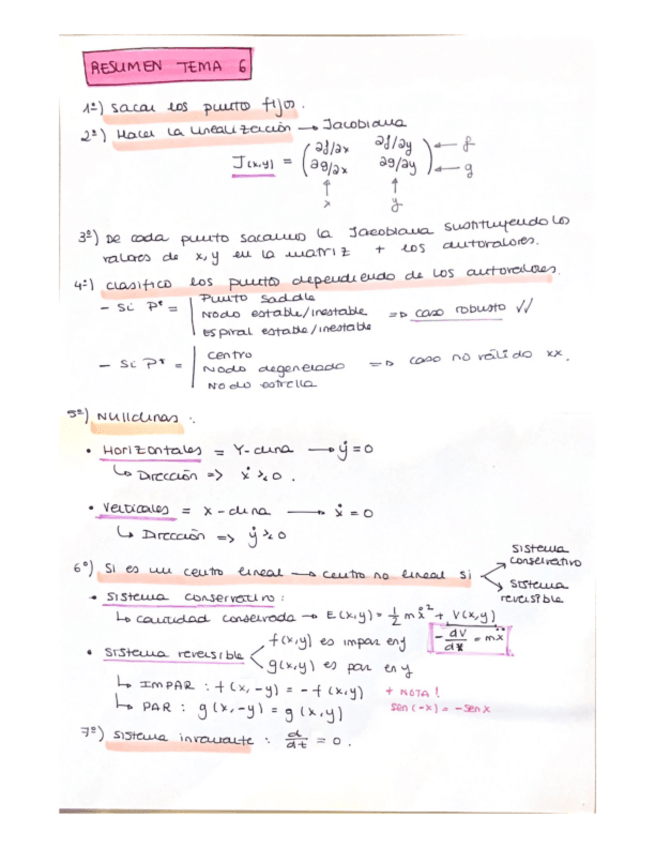 RESUMEN TEMA 6
1º) Sacar los punto fijo.
2º) Hacer la linealización → Jacobiana
J(x,y) = ( ∂f/∂x ∂f/∂y ) ← f
( ∂g/∂x ∂g/∂y ) ← g
↑ ↑
x y
3º) De cada punto sacamos la Jacobiana sustituyendo los
valores de x,y en la matriz + los autovalores.
4º) clasifico los punto dependiendo de los autovalores.
- Si P* = | Punto Saddle
Nodo estable/inestable => caso robusto ✓✓
Espiral estable/inestable
- Si P* = | centro
Nodo degenerado => caso no válido xx.
Nodo estrella
5º) Nullclinas :.
• Horizontales = Y-clina → ẏ = 0
↳ Dirección => ẋ ≷ 0.
• Verticales = X-clina → ẋ = 0
↳ Dirección => ẏ ≷ 0
6º) Si es un centro lineal → centro no lineal si
sistema conservativo
sistema reversible
• Sistema conservativo :
↳ cantidad conservada → E(x,y) = 1/2 m ẋ² + V(x,y)
-dV/dx = mẍ
• Sistema reversible < f(x,y) es impar en y
g(x,y) es par en y
↳ IMPAR : f(x,-y) = -f(x,y) + NOTA!
↳ PAR : g(x,-y) = g(x,y) sen(-x) = -senx
7º) Sistema invariante : d/dt = 0.